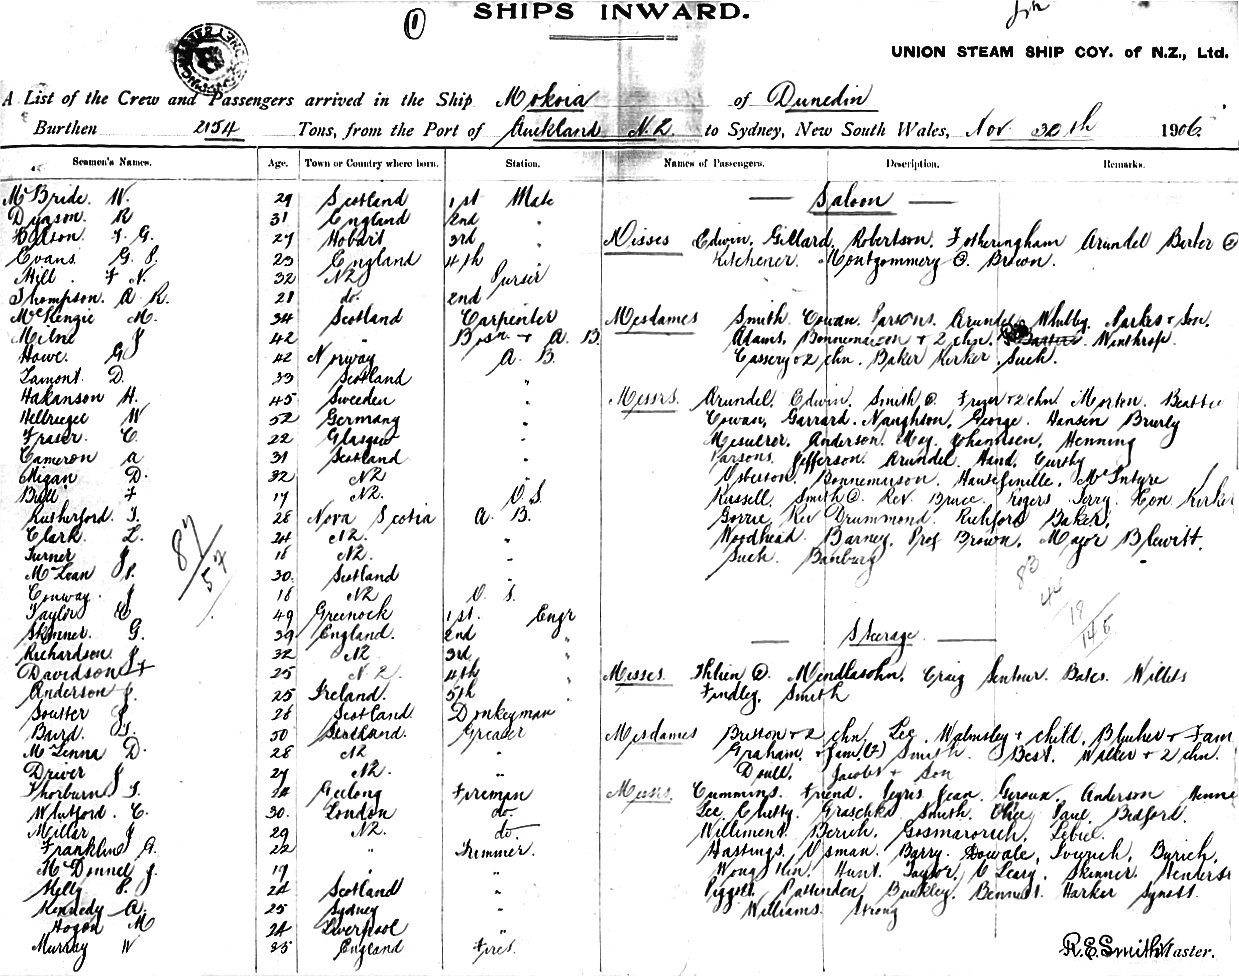 SHIPS INWARD.
1
UNION STEAM SHIP COY. of N.Z., Ltd.
A List of the Crew and Passengers arrived in the Ship Mokoia of Dunedin
Burthen 2154 Tons, from the Port of Auckland N.Z. to Sydney, New South Wales, Nov. 30th 1906
Seamen's Names. Age. Town or Country where born. Station. Names of Passengers. Description. Remarks.
McBride W. 29 Scotland 1st Mate
Dyason R 31 England 2nd "
F. G. 27 Hobart 3rd "
Evans G. 23 England 4th "
Hill F N. 32 NZ Purser
Thompson. A R. 21 do. 2nd
McKenzie M. 34 Scotland Carpenter
Milne J 42 " Bosn + A B.
Howe. G 42 Norway A. B.
Lamont D. 33 Scotland "
Hakanson H. 45 Sweden "
W 52 Germany "
Fraser. C. 22 Glasgow "
Cameron A 31 Scotland "
D. 32 NZ "
Bull F 17 NZ. O S.
Rutherford. T. 28 Nova Scotia A. B.
Clark L. 24 NZ. "
Turner J 18 NZ. "
McLean 30. Scotland "
Conway. J 18 NZ O. S.
Taylor C 49 Greenock 1st. Engr
Skinner. G. 39 England. 2nd "
Richardson J 32 NZ 3rd "
Davidson 25 N.Z. 4th "
Anderson J. 25 Ireland. 5th "
Soutter J 28 Scotland Donkeyman
Baird. 50 Scotland. Greaser
McKenna D. 28 NZ "
Driver J 27 NZ. "
Thorburn T. Geelong Fireman
Whitford. C. 30. London do.
Millar J 29 NZ. do.
Franklin G. 22 " Trimmer.
McDonnel J. 19 " "
24 Scotland "
Kennedy A. 25 Sydney "
Hogan M 24 Liverpool "
Murray W 35 England Fires.
87/57
Saloon
Misses Edwin, Gillard, Robertson. Fotheringham Arundel Barber (2)
Kitchener. Montgommery (2). Brown.
Mesdames Smith Cowan. Parsons. Arundel Whitby. Parkes + Son.
Adams, Bonnemaison + 2 chn. Winthrop.
Cassery + 2 chn. Baker Kerker. Such.
Messrs. Arundel. Edwin. Smith (2). Frazer + 2 chn. Morton. Beattie
Cowan, Garrard. Naughson, George. Hansen Brierly
Anderson. May. Johannsen, Henning
Parsons. Jefferson. Arundel. Hand. Curthy
Osberton. Bonnemaison. McIntyre
Russell. Smith (2). Rev Bruce. Rogers Terry. Hon Kerker
Gorrie. Rev Drummond. Richford Baker.
Woodhead. Barney. Prof Brown. Major Blewitt.
Such. Banbury
83
44
18
145
Steerage.
Misses. (2). Mendlasohn, Craig Bates. Willets
Findley. Smith
Mesdames Britton + 2 chn. Lee. Walmsley + child. Blucher + Fam
Graham. + Fam. (2) Smith. Best. Walker + 2 chn.
Doull. Jacobs + Son
Messrs. Cummins. Friend. Jean. Giroux. Anderson
Lee Chitty. Graschke Smith. Paul Bedford.
Williment. Berich. Gosmarorich.
Hastings. Usman. Barry. Burich.
Wong Hunt. Taylor. O'Leary. Skinner. Henders
Piggott. Pattenden Buckley. Bennett. Harker Synott.
Williams Strong
R. E. Smith Master.